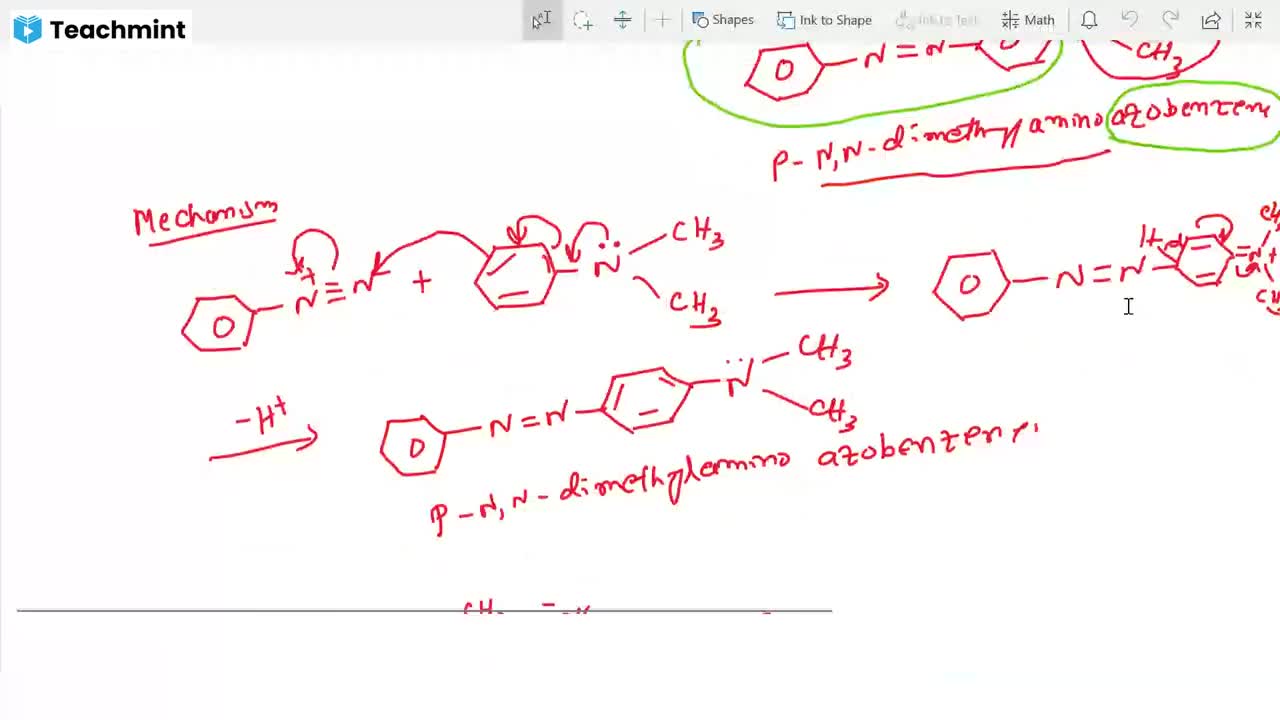 Teachmint
Shapes
Ink to Shape
Ink to Text
Math
N = N
CH3
P - N,N - dimethyl amino azobenzene
Mechanism
N + ≡ N + N CH3 CH3
N = N H N + CH
-H+
N = N N CH3 CH3
P - N, N - dimethylamino azobenzene